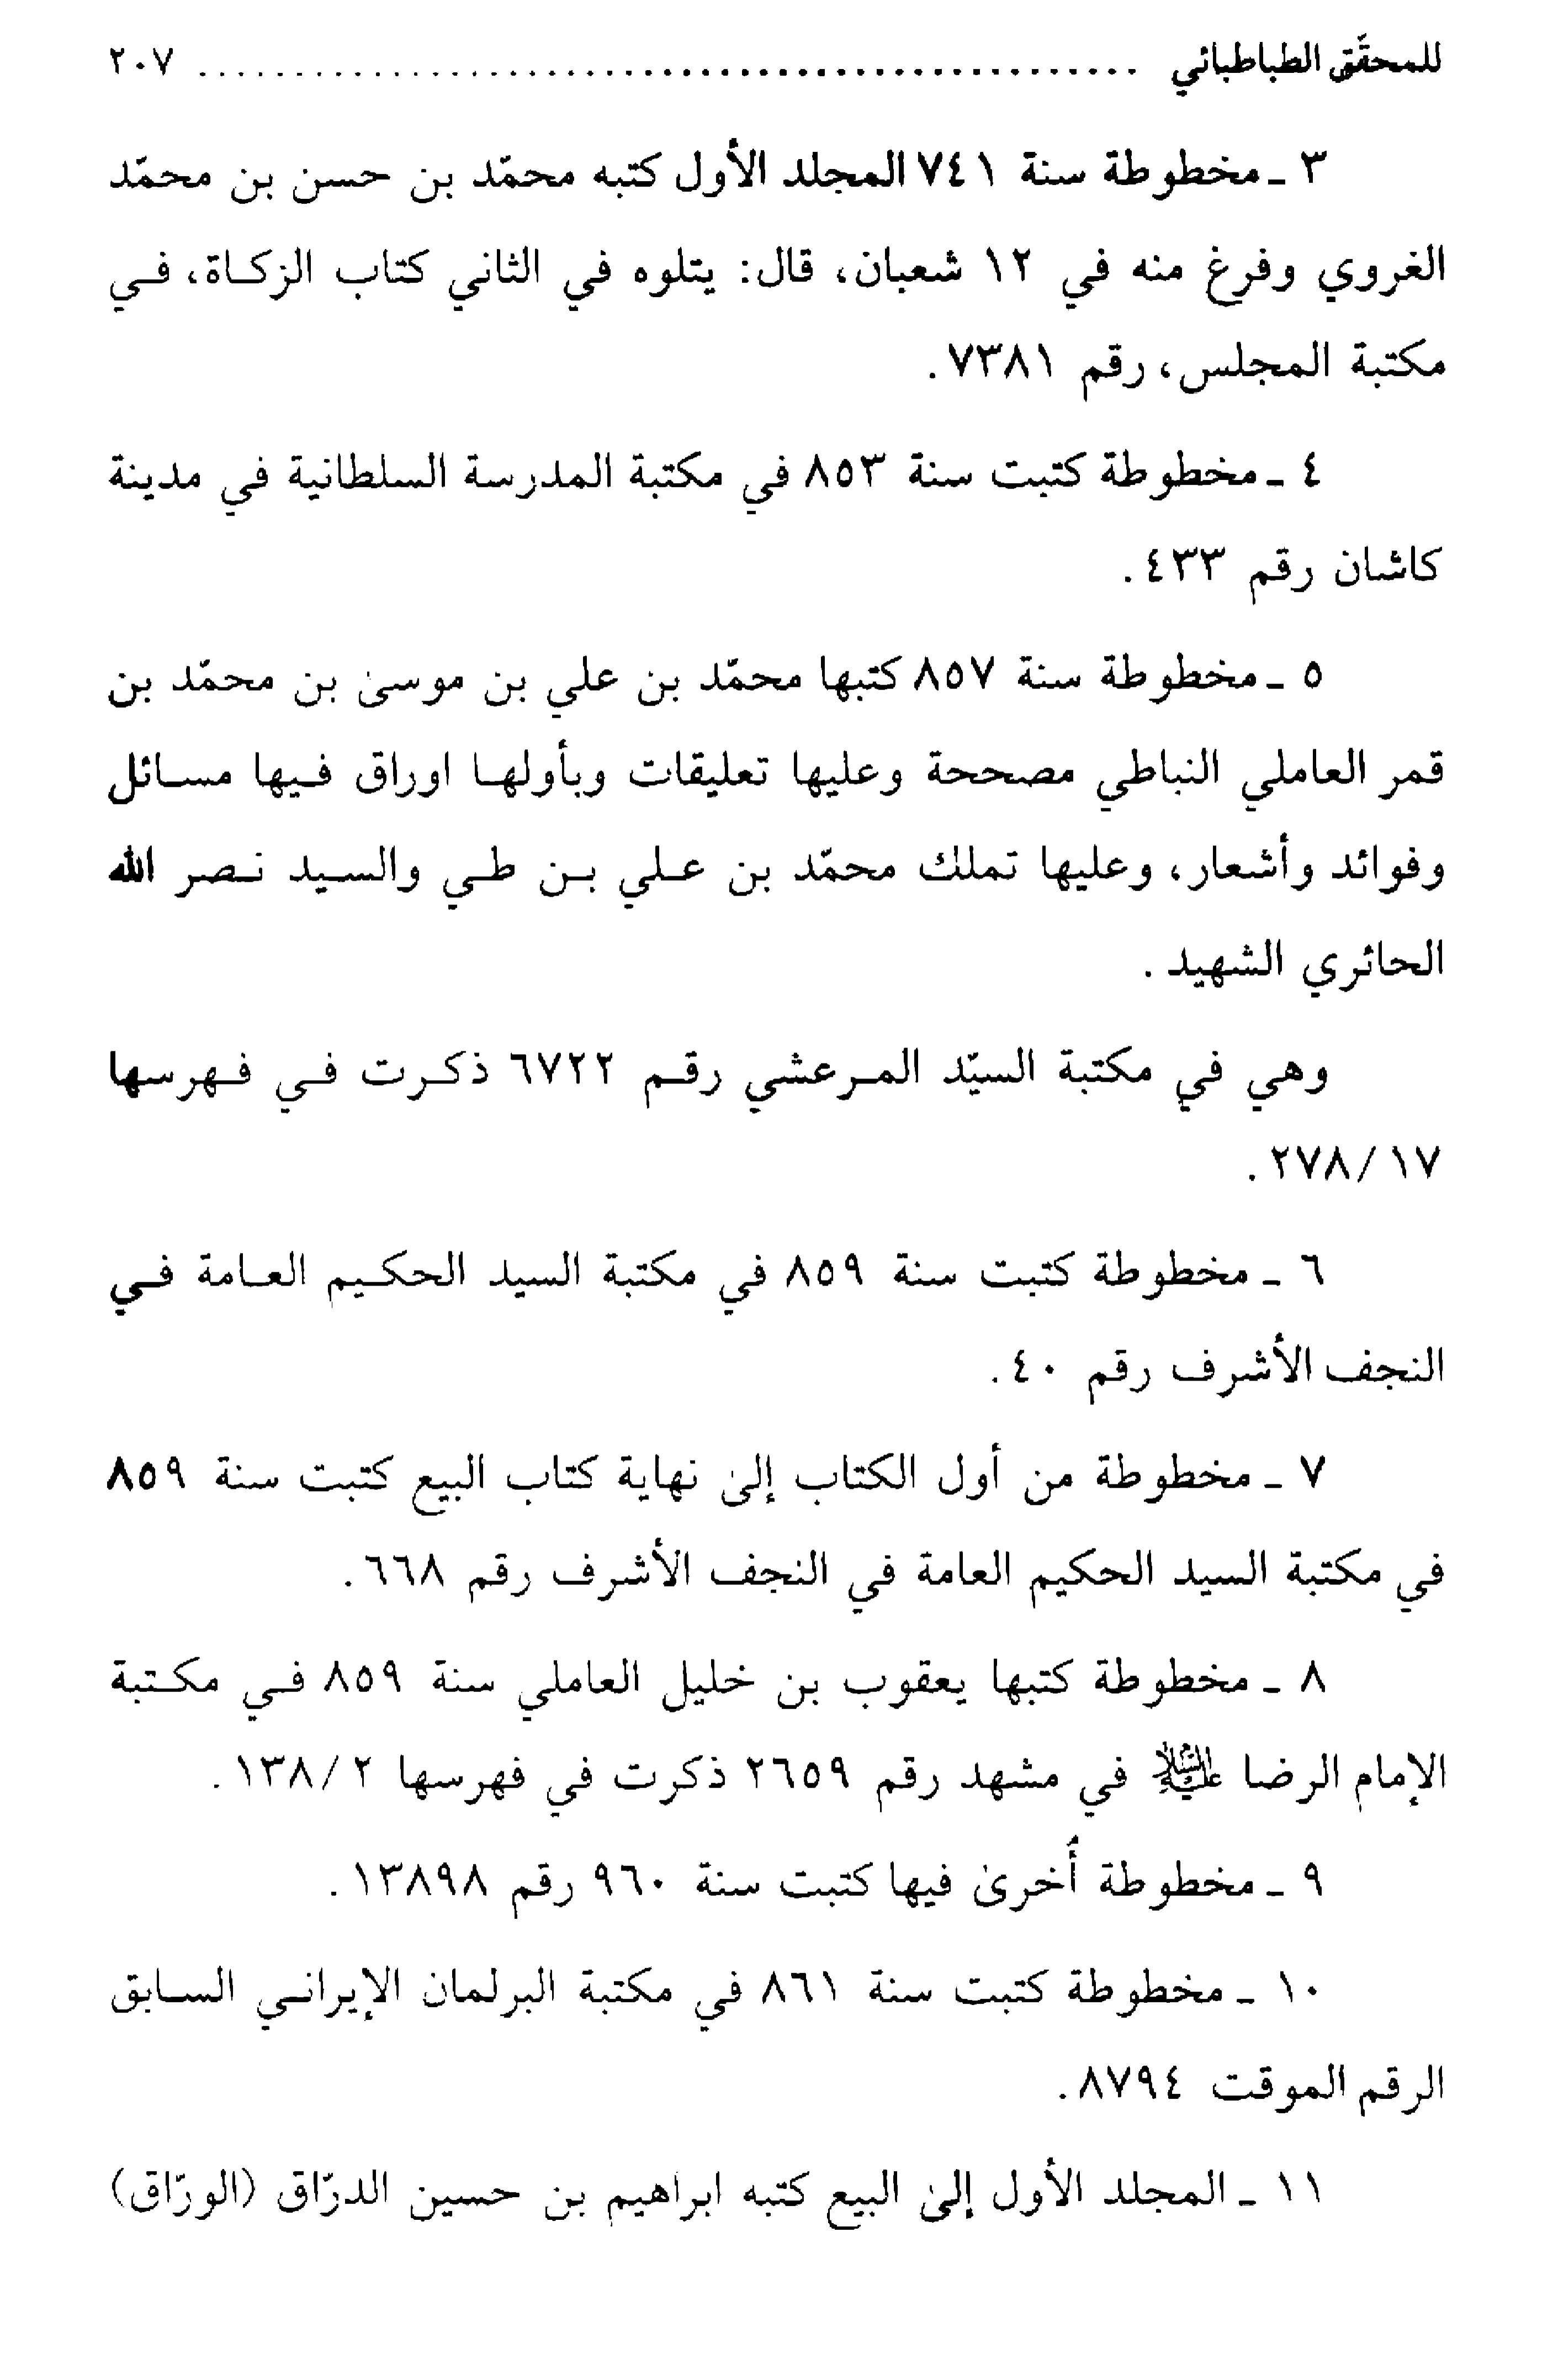 للمحقّق الطباطبائي ................................................ ٢٠٧
٣ ـ مخطوطة سنة ٧٤١ المجلد الأول كتبه محمّد بن حسن بن محمّد
الغروي وفرغ منه في ١٢ شعبان، قال: يتلوه في الثاني كتاب الزكاة، في
مكتبة المجلس، رقم ٧٣٨١.
٤ ـ مخطوطة كتبت سنة ٨٥٣ في مكتبة المدرسة السلطانية في مدينة
كاشان رقم ٤٣٣.
٥ ـ مخطوطة سنة ٨٥٧ كتبها محمّد بن علي بن موسىٰ بن محمّد بن
قمر العاملي النباطي مصححة وعليها تعليقات وبأولها اوراق فيها مسائل
وفوائد وأشعار، وعليها تملك محمّد بن علي بن طي والسيد نصر الله
الحائري الشهيد.
وهي في مكتبة السيّد المرعشي رقم ٦٧٢٢ ذكرت في فهرسها
٢٧٨/١٧.
٦ ـ مخطوطة كتبت سنة ٨٥٩ في مكتبة السيد الحكيم العامة في
النجف الأشرف رقم ٤٠.
٧ ـ مخطوطة من أول الكتاب إلىٰ نهاية كتاب البيع كتبت سنة ٨٥٩
في مكتبة السيد الحكيم العامة في النجف الأشرف رقم ٦٦٨.
٨ ـ مخطوطة كتبها يعقوب بن خليل العاملي سنة ٨٥٩ في مكتبة
الإمام الرضا عليه السلام في مشهد رقم ٢٦٥٩ ذكرت في فهرسها ١٣٨/٢.
٩ ـ مخطوطة أُخرىٰ فيها كتبت سنة ٩٦٠ رقم ١٣٨٩٨.
١٠ ـ مخطوطة كتبت سنة ٨٦١ في مكتبة البرلمان الإيراني السابق
الرقم الموقت ٨٧٩٤.
١١ ـ المجلد الأول إلىٰ البيع كتبه ابراهيم بن حسين الدرّاق (الورّاق)